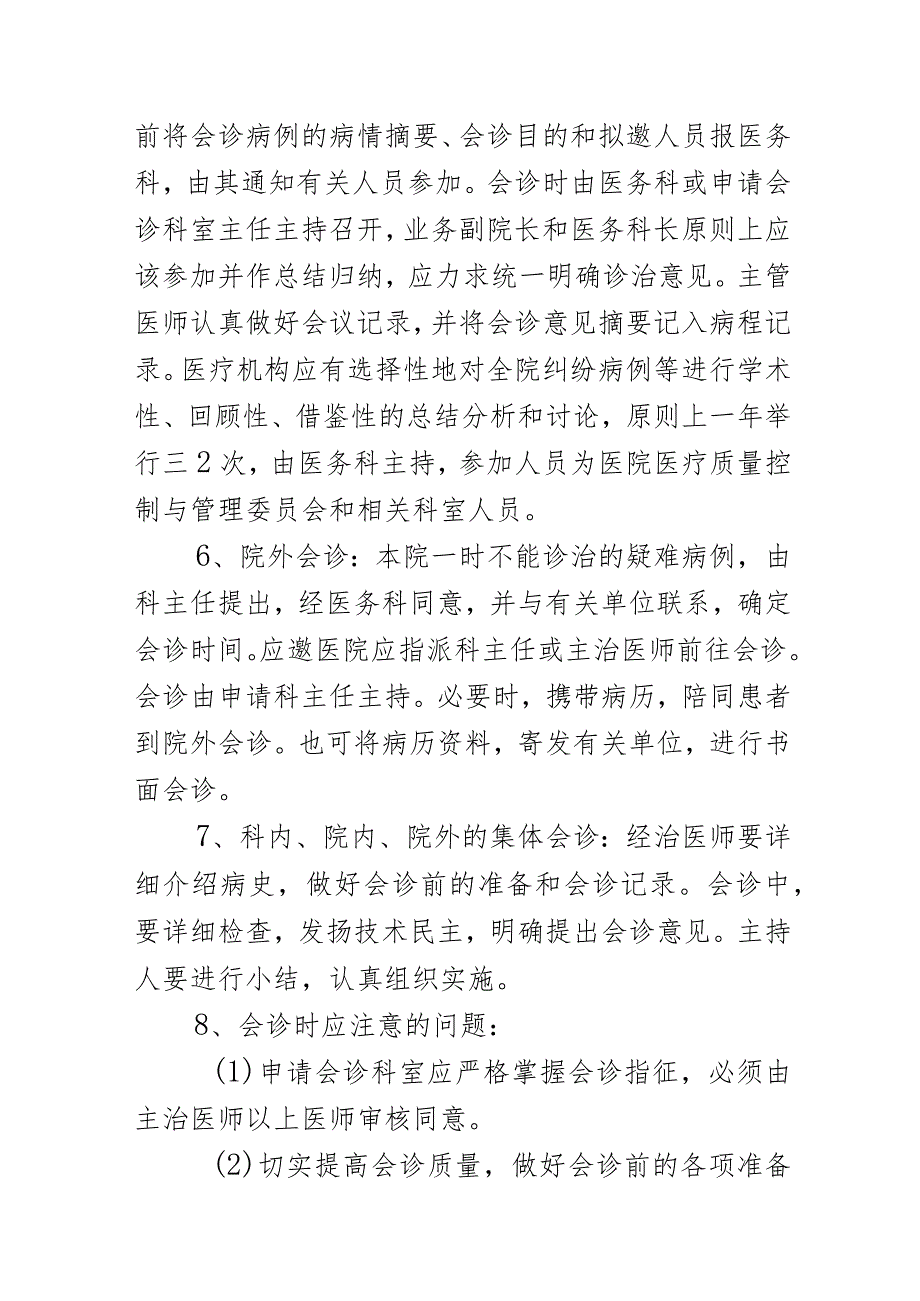 前将会诊病例的病情摘要、会诊目的和拟邀人员报医务
科，由其通知有关人员参加。会诊时由医务科或申请会
诊科室主任主持召开，业务副院长和医务科长原则上应
该参加并作总结归纳，应力求统一明确诊治意见。主管
医师认真做好会议记录，并将会诊意见摘要记入病程记
录。医疗机构应有选择性地对全院纠纷病例等进行学术
性、回顾性、借鉴性的总结分析和讨论，原则上一年举
行三2次，由医务科主持，参加人员为医院医疗质量控
制与管理委员会和相关科室人员。
6、院外会诊：本院一时不能诊治的疑难病例，由
科主任提出，经医务科同意，并与有关单位联系，确定
会诊时间。应邀医院应指派科主任或主治医师前往会诊。
会诊由申请科主任主持。必要时，携带病历，陪同患者
到院外会诊。也可将病历资料，寄发有关单位，进行书
面会诊。
7、科内、院内、院外的集体会诊：经治医师要详
细介绍病史，做好会诊前的准备和会诊记录。会诊中，
要详细检查，发扬技术民主，明确提出会诊意见。主持
人要进行小结，认真组织实施。
8、会诊时应注意的问题：
(1)申请会诊科室应严格掌握会诊指征，必须由
主治医师以上医师审核同意。
(2)切实提高会诊质量，做好会诊前的各项准备